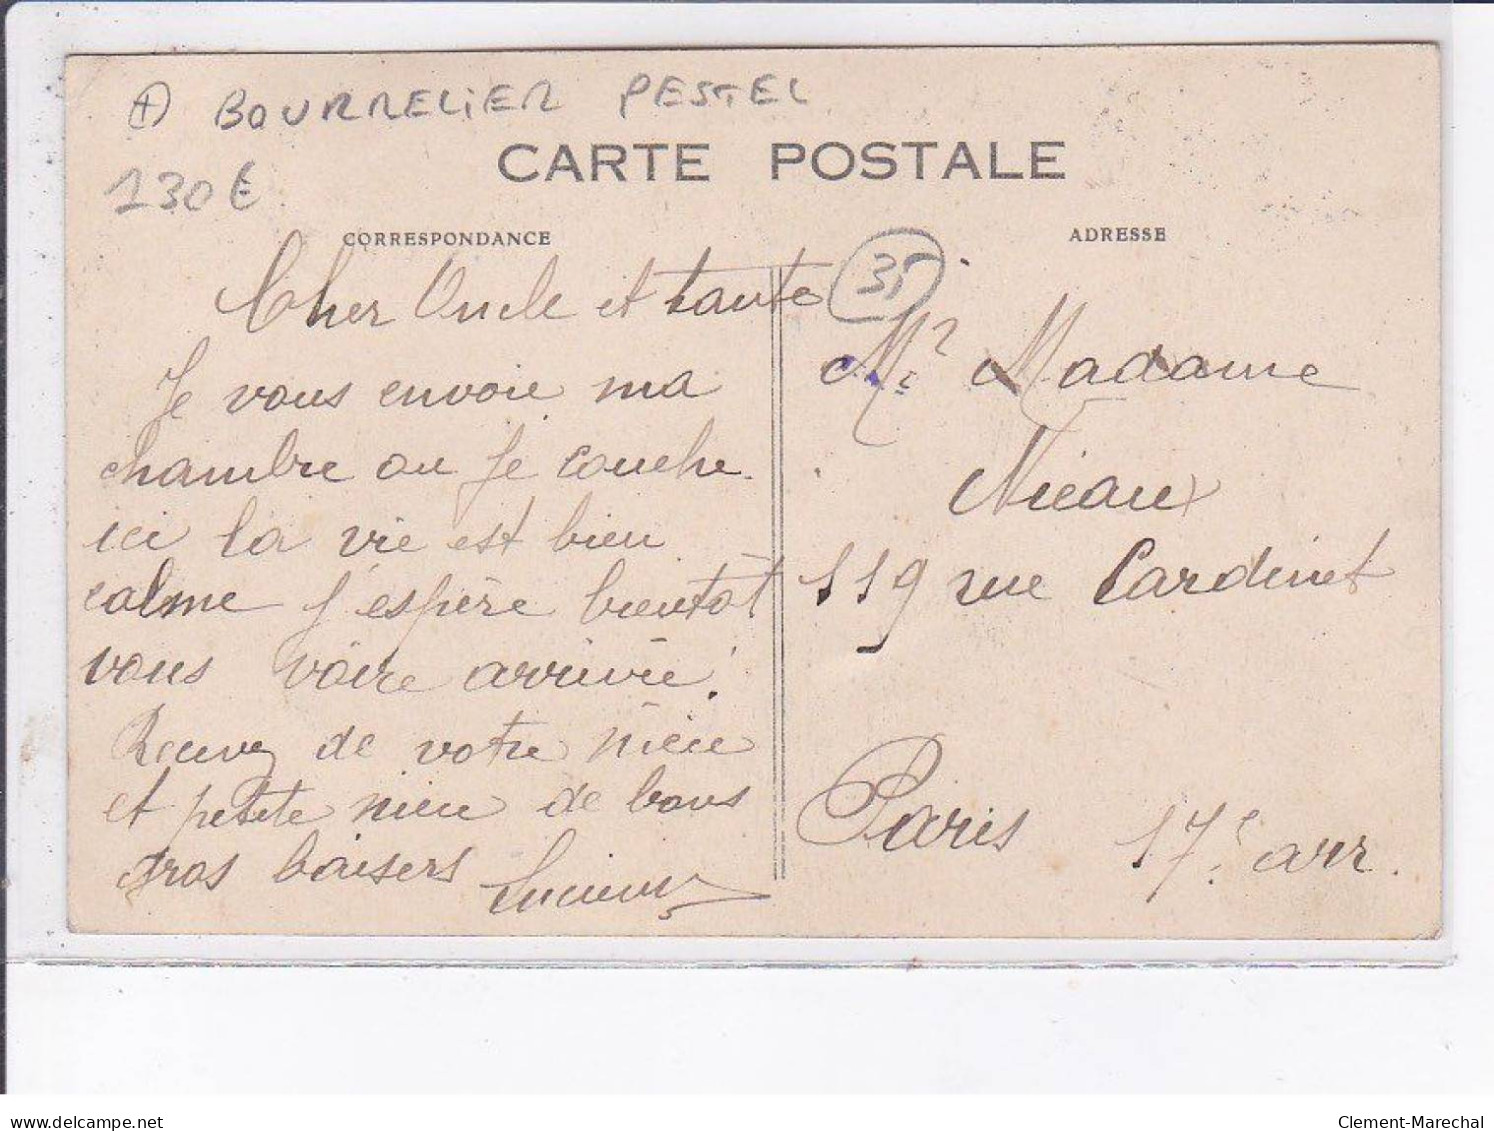 + BOURRELIER PESTEL
130€
CARTE POSTALE
CORRESPONDANCE
ADRESSE
35
Cher Oncle et tante
Je vous envoie ma
chambre ou Je couche
ici la vie est bien
calme J'espère bientôt
vous voire arrivié!
Recuvez de votre nieie
et petite nieie de bons
gros baisers
Mr Madame
119 rue Cardinet
Paris 17e arr.
delcampe.net
Clement-Marechal